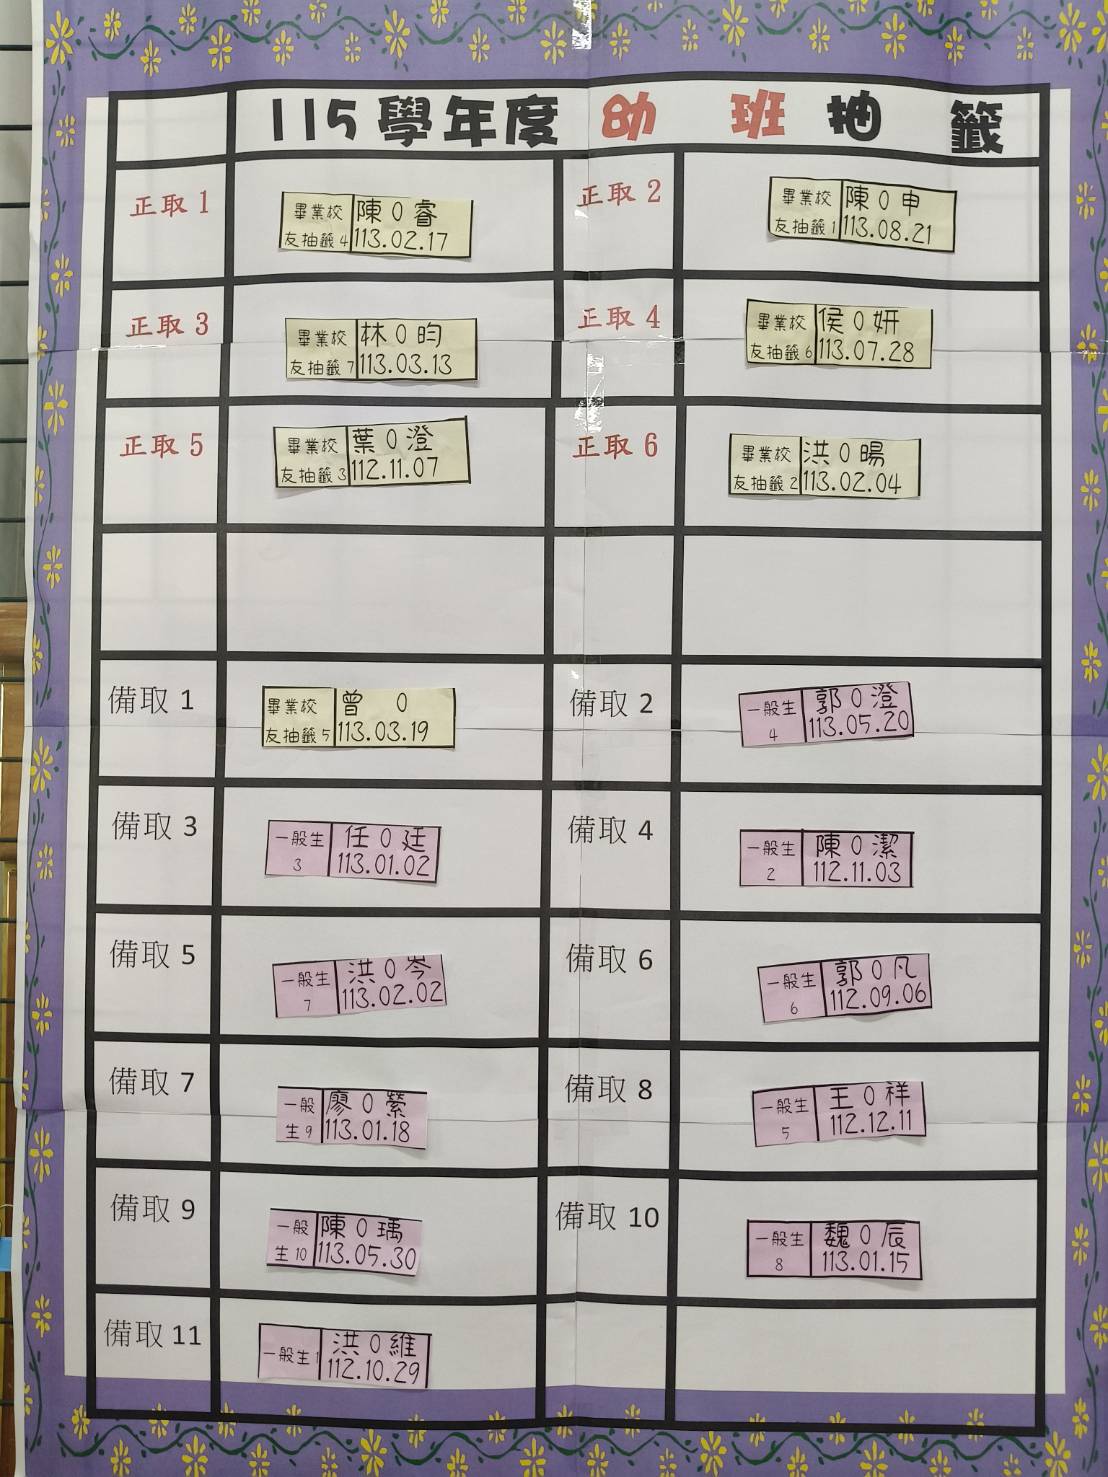 115學年度 幼 班 抽 籤
正取 1
畢業校 陳 O 睿
友抽籤 4 113.02.17
正取 2
畢業校 陳 O 申
友抽籤 1 113.08.21
正取 3
畢業校 林 O 昀
友抽籤 7 113.03.13
正取 4
畢業校 侯 O 妍
友抽籤 6 113.07.28
正取 5
畢業校 葉 O 澄
友抽籤 3 112.11.07
正取 6
畢業校 洪 O 暘
友抽籤 2 113.02.04
備取 1
畢業校 曾 O
友抽籤 5 113.03.19
備取 2
一般生 郭 O 澄
4 113.05.20
備取 3
一般生 任 O 廷
3 113.01.02
備取 4
一般生 陳 O 潔
2 112.11.03
備取 5
一般生 洪 O 岑
7 113.02.02
備取 6
一般生 郭 O 凡
6 112.09.06
備取 7
一般 廖 O 縈
生 9 113.01.18
備取 8
一般生 王 O 祥
5 112.12.11
備取 9
一般 陳 O 瑀
生 10 113.05.30
備取 10
一般生 魏 O 辰
8 113.01.15
備取 11
一般生 1 洪 O 維
112.10.29